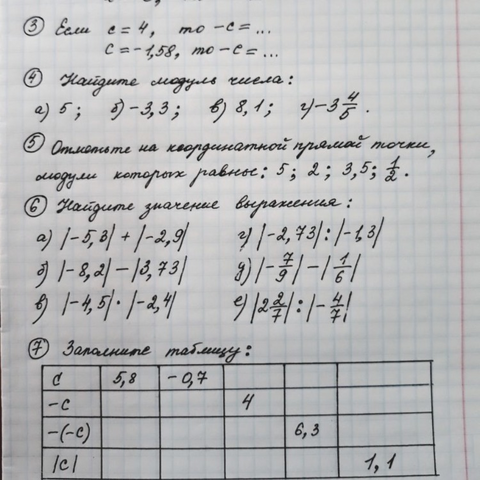 ③ Если c = 4, то -c = ...
c = -1,58, то -c = ...
④ Найдите модуль числа:
а) 5; б) -3,3; в) 8,1; г) -3 4/5.
⑤ Отметьте на координатной прямой точки,
модули которых равны: 5; 2; 3,5; 1/2.
⑥ Найдите значение выражения:
а) |-5,3| + |-2,9| г) |-2,73| : |-1,3|
б) |-8,2| - |3,73| д) |-7/9| - |1/6|
в) |-4,5| · |-2,4| е) |2 2/7| : |-4/7|
⑦ Заполните таблицу:
c 5,8 -0,7
-c 4
-(-c) 6,3
|c| 1,1